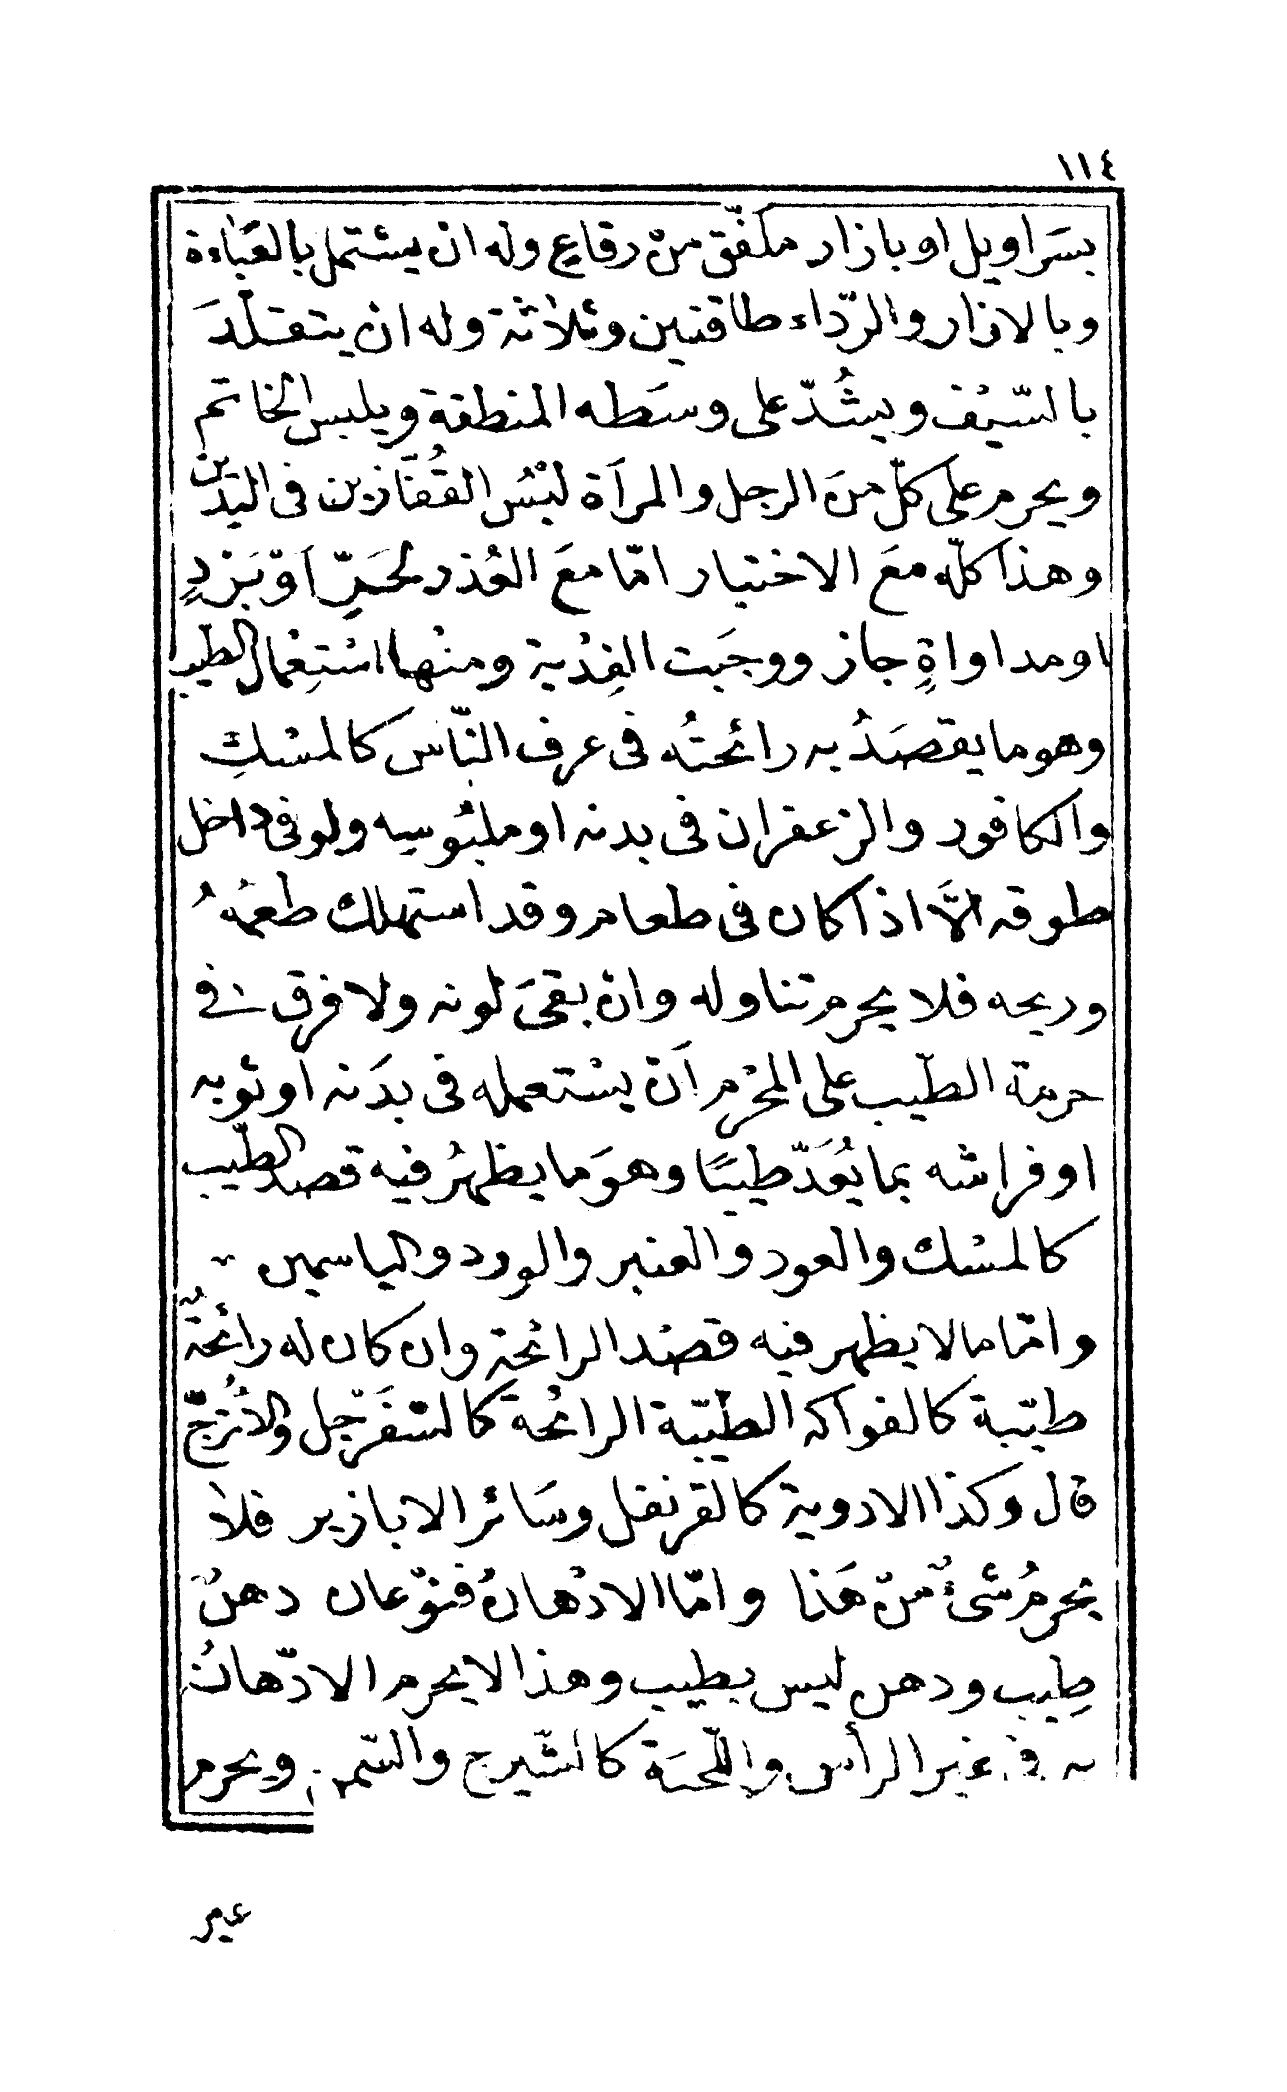 ١١٤
بسَراويل او بازار مكفّق منْ رقاع وله ان يشتمل بالعَبَاءة
وبالازار والرّداء طاقتين وثلاثة وله ان يتقلّدَ
بالسّيْف ويشُدّ على وسَطه المنطقة ويلبس الخاتم
ويحرم على كلّ منَ الرجل والمرأة لبْسُ القُفّازين فى اليَدين
وهذا كلّه معَ الاختيار امّا معَ العُذر لحَرٍّ اوْ بَرْدٍ
او مداواةٍ جاز ووجَبت الفِدْية ومنْها اسْتِعْمال الطيب
وهو ما يقصَدُ به رائحتُه فى عرف النّاس كالمسْكِ
والكافور والزعفران فى بدنه او ملبُوسه ولو فى داخل
طوقه الاَّ اذا كان فى طعام وقد استهلك طعمُهُ
وريحه فلا يحرم تناوله وان بقىَ لونه ولا فرق فى
حرمة الطّيب على المحْرم اَن يسْتعمله فى بدَنه او ثوبه
او فراشه بما يُعَدّ طيبًا وهوَ ما يظهرُ فيه قصد الطّيب
كالمسْك والعود والعنبر والورد والياسمين
وامّا ما لا يظهر فيه قصْد الرائحة وان كان له رائحةٌ
طيّبة كالفواكه الطيّبة الرائحة كالسّفَرْجل والاُتْرُجّ
قال وكذا الادوية كالقرنفل وسَائر الابازير فلا
يحرمُ شىءٌ منْ هَذا وامّا الادْهانُ فنوْعان دهنٌ
طِيب ودهن ليس بطيب وهذا لا يحرم الادّهانُ
به فى غير الرأس واللّحيَة كالشّيرج والسّمن ويحرم
عير